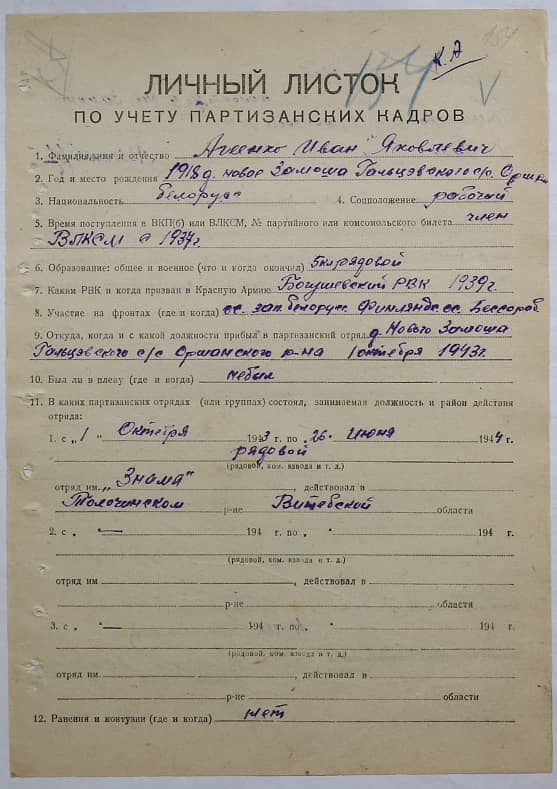 154
К. Д
154
V
ЛИЧНЫЙ ЛИСТОК
ПО УЧЕТУ ПАРТИЗАНСКИХ КАДРОВ
1. Фамилия, имя и отчество Агеенко Иван Яковлевич
2. Год и место рождения 1918 д. новое Замоша Гольцовского с/с. Орша
3. Национальность белорус 4. Соцположение рабочий
5. Время поступления в ВКП(б) или ВЛКСМ, № партийного или комсомольского билета член
ВЛКСМ с 1937г.
6. Образование: общее и военное (что и когда окончил) 5кл рядовой
7. Каким РВК и когда призван в Красную Армию Богушевский РВК 1939г.
8. Участие на фронтах (где и когда) ос. зап. белорус. Финляндс. ос. Бессараб.
9. Откуда, когда и с какой должности прибыл в партизанский отряд д. Нового Замоша
Гольцовского с/с Оршанского р-на 1 октября 1943г.
10. Был ли в плену (где и когда) не был
11. В каких партизанских отрядах (или группах) состоял, занимаемая должность и район действия
отряда:
1. с „1 " Октября 1943 г. по „26 " Июня 1944 г.
рядовой
(рядовой, ком. взвода и т. д.)
отряд им. „Знамя" , действовал в
Толочинском р-не Витебской области
2. с „ " — 194 г. по „ " 194 г.
(рядовой, ком. взвода и т. д.)
отряд им , действовал в
р-не области
3. с „ " — 194 г. по „ " 194 г.
(рядовой, ком. взвода и т. д.)
отряд им. , действовал в
р-не области
12. Ранения и контузии (где и когда) нет